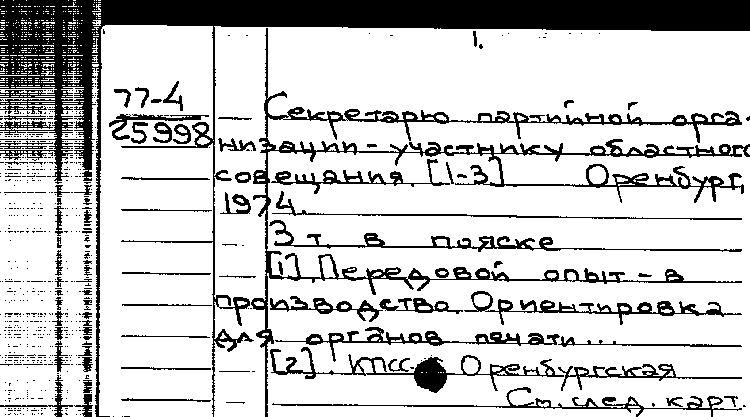 1.
77-4
25998
Секретарю партийной орга-
низации-участнику областного
совещания. [1-3] Оренбург,
1974.
3 т. в пояске
[1]. Передовой опыт - в
производство. Ориентировка
для органов печати...
[2]. КПСС. Оренбургская
См. след. карт.